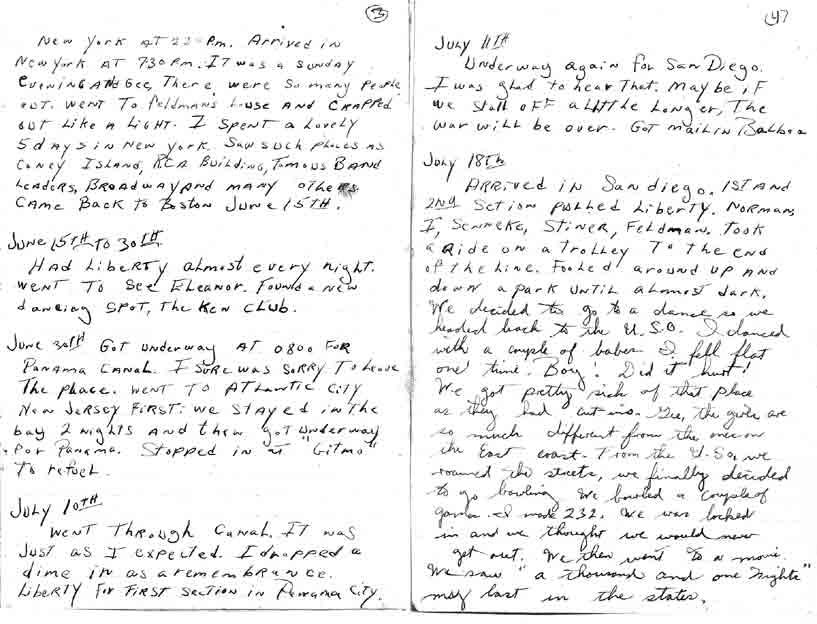 3
New York AT 220 P.m. Arrived in
New York AT 730 P.m. IT was a SUNDAY
EVENING AND Gee, There were so many People
out. Went To Feldman's House AND CRAPPED
out Like A LIGHT. I SPENT a Lovely
5 days in New York. Saw such places as
Coney Island, RCA Building, Famous BAND
Leaders, BROADWAY AND MANY others
CAME BACK To BOSTON JUNE 15TH.
JUNE 15TH TO 30TH
HAD LIBERTY almost every night.
WENT To See Eleanor. Found a new
dancing SPOT, The Ken CLUB.
JUNE 30TH GOT UNDERWAY AT 0800 FOR
PANAMA CANAL. I SURE WAS SORRY To Leave
The place. WENT TO ATLANTIC CITY
NEW JERSEY FIRST. We STAYED in The
bay 2 NIGHTS AND Then got Underway
For Panama. Stopped in at "Gitmo"
To refuel.
JULY 10TH
WENT Through Canal. IT was
JUST as I expected. I dropped a
dime in as a remembrance.
LIBERTY For FIRST Section in Panama City.
47
JULY 11TH
Underway again for San Diego.
I was glad to hear That. May be, if
we stall off a little Longer, The
war will be over. Got mail in Balboa
JULY 18TH
ARRIVED in San diego. 1ST AND
2ND Section pulled Liberty. Norman,
I, Senneke, Stiner, Feldman. Took
a Ride on a Trolley To The end
of The Line. Fooled around up AND
down a park until almost dark.
We decided to go to a dance so we
headed back to the U.S.O. I danced
with a couple of babes. I fell flat
one time. Boy! Did it hurt!
We got pretty sick of that place
as they had cut ins. Gee, the girls are
so much different from the ones on
the East coast. From the U.S.O. we
roamed the streets, we finally decided
to go bowling. We bowled a couple of
games. I made 232. We was locked
in and we thought we would never
get out. We then went to a movie.
We saw "a thousand and one Nights"
my last in the states.